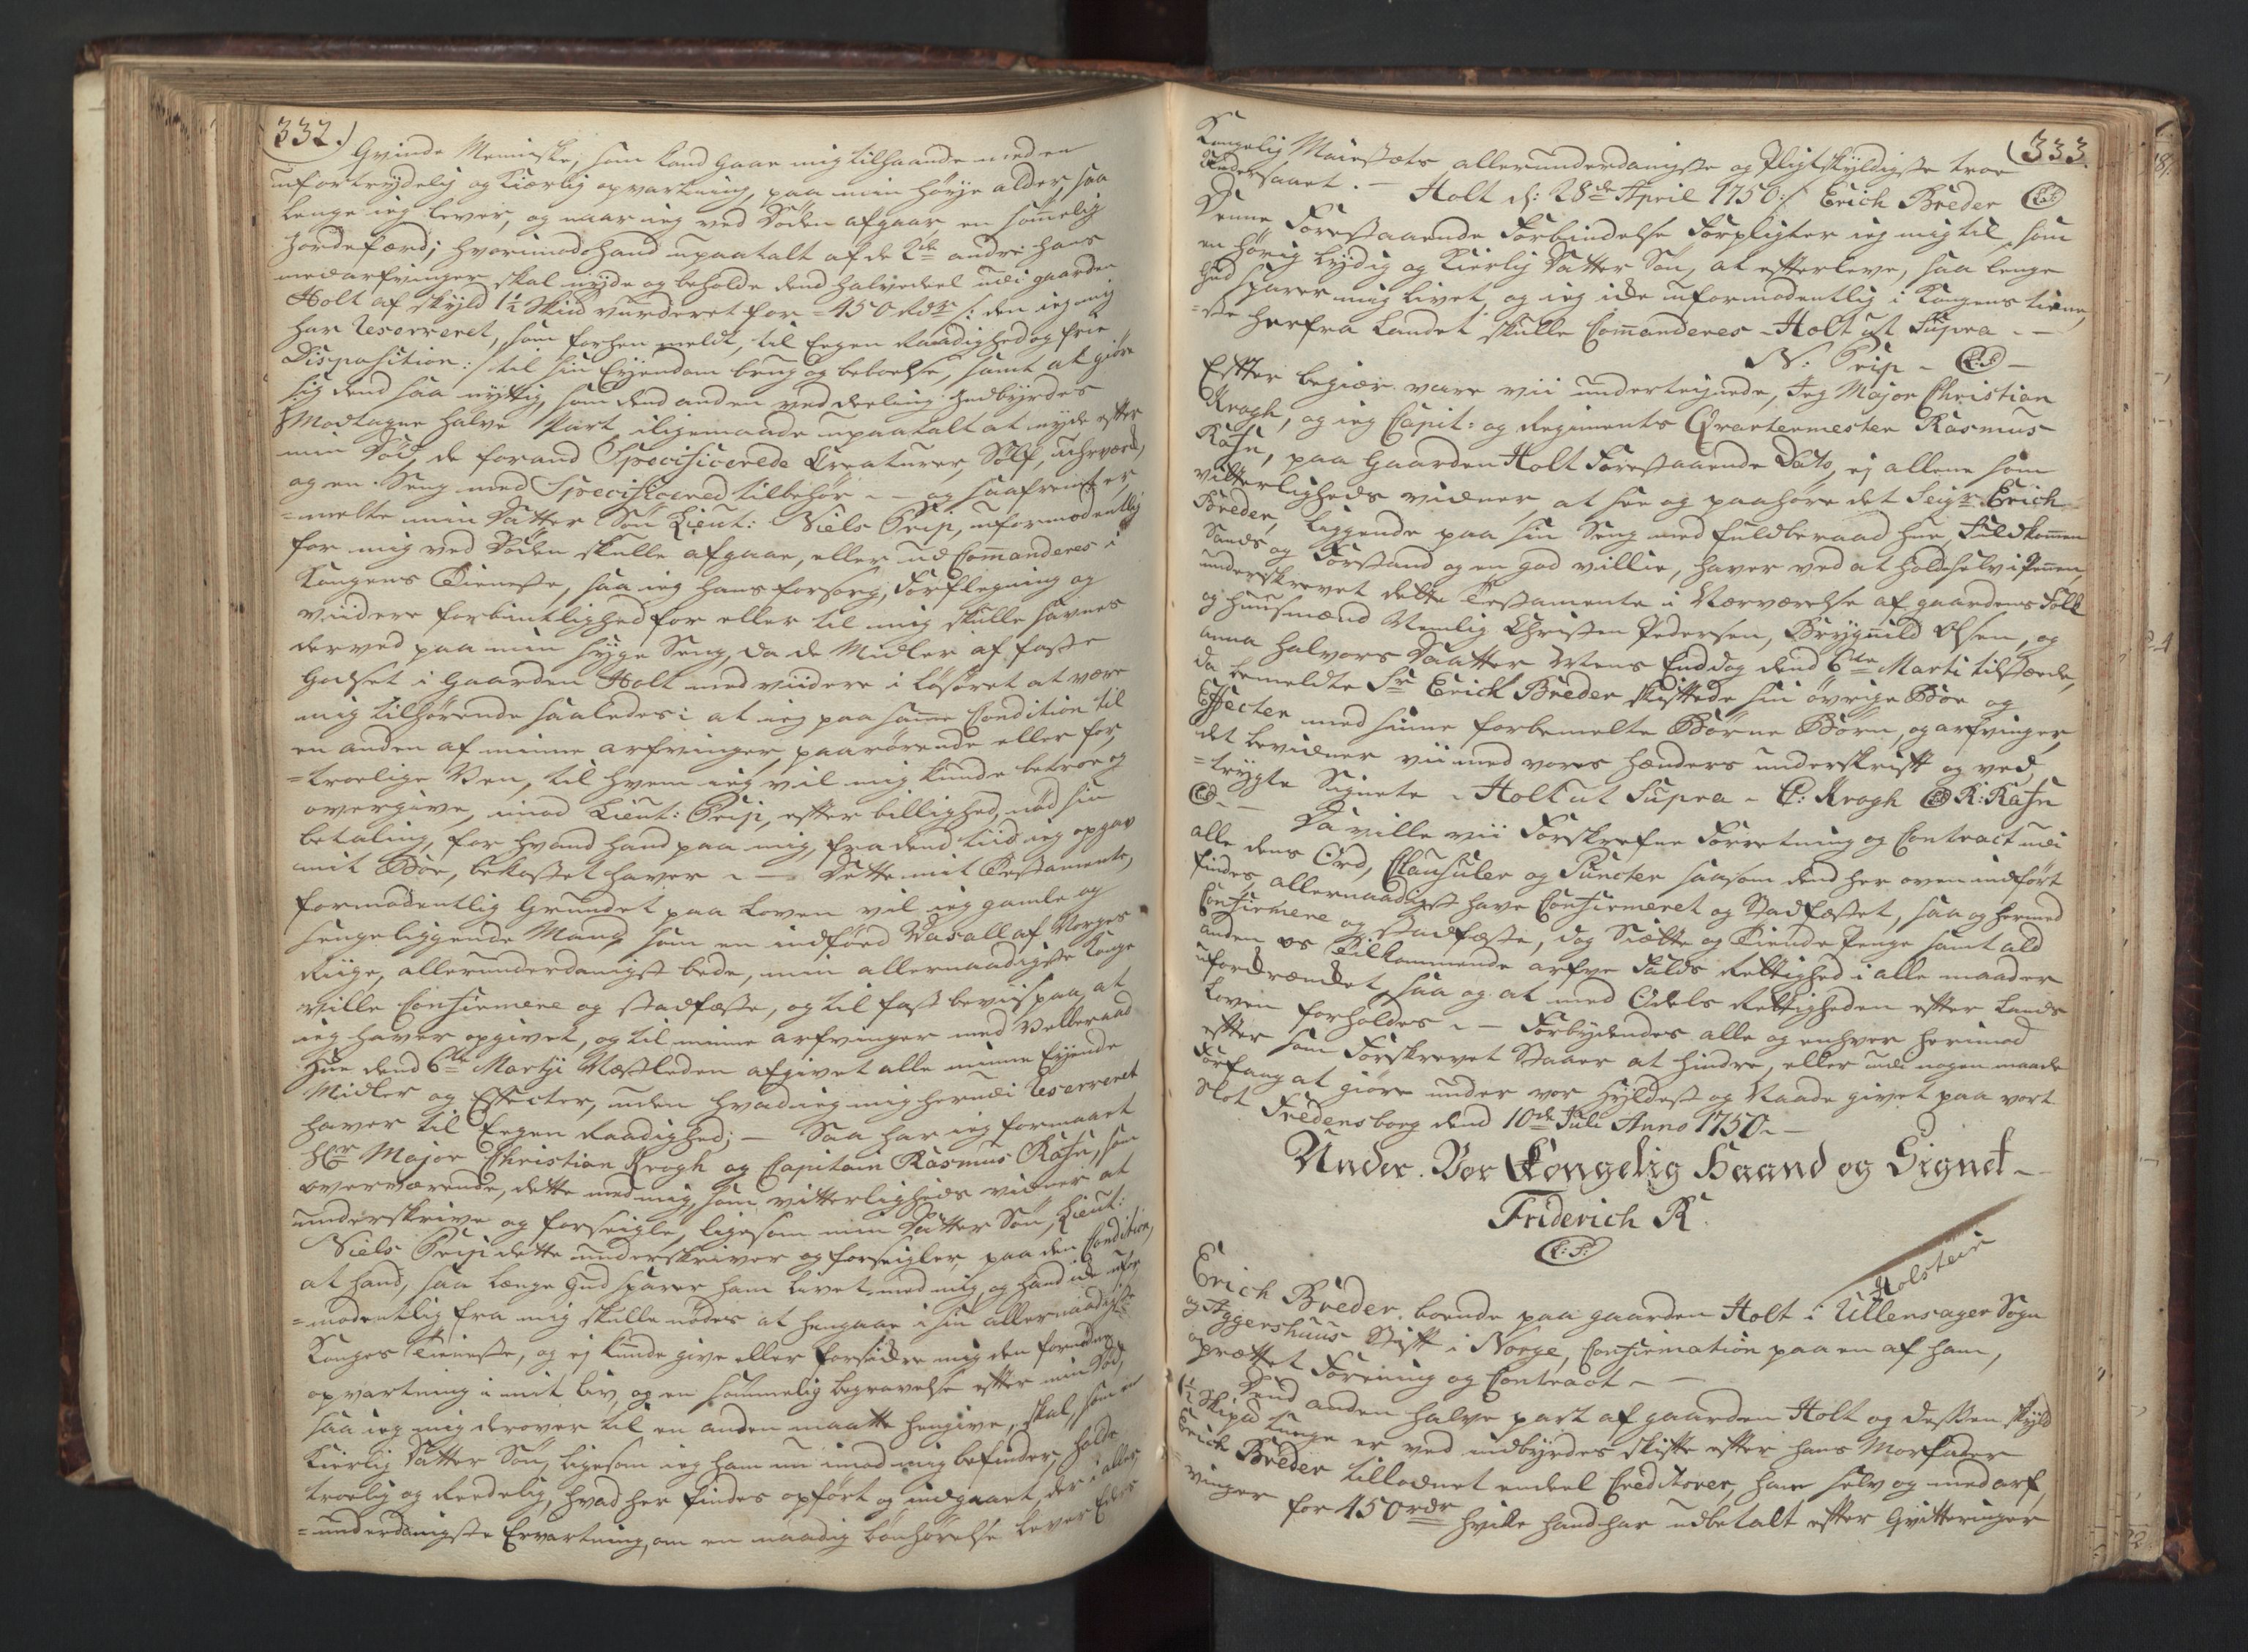 332.)
Qvinde Menniske, som kand gaae mig tilhaande med en
ufortrydelig og Kiærlig opvartning, paa min höye alder, saa
lenge ieg lever, og naar ieg ved Döden afgaar, en sömmelig
Jordefærd; hvorimod hand upaatalt af de 2de andre hans
medarfvinger skal nyde og beholde dend halvedeel udi gaarden
Holt af skyld 1½ Skind vurderet for = 450 Rdr /: den ieg mig
har Reserveret, som forhen meldt, til Eegen Raadighed og frie
Disposition :/ til sin Eyendom brug og beboelse, samt at giöre
sig dend saa nyttig, som dend anden ved deeling Indbyrdes
Modtagne halve Part, iligemaade upaatalt at nyde efter
min Död, de forand Specificerede Creaturer, Sölf, uhrværk,
og en Seng med Specificered tilbehör ~ — og saafremt er,
=melte min Datter Sön Lieut: Niels Prip, uformodentlig
for mig ved Döden skulle afgaae, eller ud Commanderes i
Kongens Tieneste, saa ieg hans forsorg, Forflegning og
viidere forbindtlighed for eller til mig skulle savnes
derved paa min syge Seng, da de Midler af faste
Godset i Gaarden Holt med viidere i Lösöret at være
mig tilhörende saaledes: at ieg paa samme Condition til
en anden af minne arfvinger, paarörende eller for,
=troelige Ven, til hvem ieg vil mig kunde betroe og
overgive, imod Lieut: Prip, efter billighed, nød sin
betaling, for hvad hand paa mig, fra dend tiid ieg opgav
mit Boe, bekostet haver ~ — Dette mit Testamente,
formodentlig Grundet paa Loven vil ieg gamle og
sengeliggende Mand, som en indförd Vasall af Norges
Riige, allerunderdanigst bede, min allernaadigste Konge
ville Confirmere og stadfæste, og til fast beviis paa, at
ieg haver opgivet, og til minne arfvinger med Velberaad
Hue dend 6te Martji Næstleden afgivet alle minne Eyende
Midler og Effecter, uden hvad ieg mig herudi Reserveret
haver til Eegen Raadighed; — Saa har ieg formaaet
Hr Major Christian Krogh og Capitain Rasmus Rasn, som
overværende, dette med mig, som vitterligheds vidner at
underskrive og forseigle, ligesom min Datter Sön, Lieut:
Niels Prip dette underskriver og forseigler, paa den Condition,
at hand, saa længe Gud sparer ham livet, med mig, og hand ide ufor,
=modentlig fra mig skulle nödes at hengaae i sin allernaadigste
Konges Tieneste, og ej kunde give eller forsikre mig den fornödne
opvartning i mit liv, og en sömmelig begravelse efter min Död,
saa ieg mig derover til en anden maatte hengive, skal, som en
Kierlig Datter Sön, ligesom ieg ham nu imod mig befinder, holde
troelig og Reedelig, hvad her findes opfört og indgaaet, der i aller,
=underdanigste Ervartning, om en naadig bönhörelse lever Eders
(333.
Kongelig Maiestæts allerunderdanigste og Pligtskyldigste troe
Undersaat. — Holt d: 28de April 1750 :/ Erich Breder (L:S:)
Denne Forestaaende Forbindelse Forpligter ieg mig til, som
en hörig lydig og Kierlig Datter Sön, at efterleve, saa lenge
Gud sparer mig livet, og ieg ide uformodentlig i Kongens tiene,
=ste herfra Landet skulle Commanderes ~ Holt ut Supra ~ —
N: Prip ~ (L:S:) —
Efter begiær vare vii underteignede, Jeg Major Christian
Krogh, og ieg Capit: og Regiments Qvarteermester Rasmus
Rasn, paa Gaarden Holt Forestaaende Dato, ej allene som
vitterligheds vidner, at see og paahöre det Seigr Erich
Breder, liggende paa sin Seng med fuldberaad Hue, Fuldkommen
Sands og Forstand og en god villie, haver ved at holde selv i Pennen,
underskrevet dette Testamente i Nærværelse af gaardens Folk
og Huusmænd Nemlig Christen Pedersen, Brynnild Olsen, og
Anna Halvors Daatter Mens End dog dend 6te Marti tilstæde,
da bemeldte Sr Erich Breder skiftede sin övrige Boe og
Effecter med sinne forbemelte Börne Börn, og arfvinger
det bevidner vii med vores Hænders underskrift og ved,
=trygte Signete ~ Holt ut Supra ~ C: Krogh (L:S:) R: Rasn
(L:S:) ~ — Da ville vii Forskrefne Forretning og Contract udi
alle dens Ord, Clausuler og Puncter saasom dend her oven indfört
findes, allernaadigst have Confirmeret og Stadfæstet, saa og hermed
Confirmere og stadfæste, dog Siætte og Tiende Penge samt ald
anden os Tilkommende arfve Falds Rettighed i alle maader
uforkrænket, saa og at med Odels Rettigheden efter Lands
Loven forholdes ~ — Forbydendes alle og enhver herimod
efter som Forskrevet staaer at hindre, eller udi nogen maade
Forfang at giöre under vor Hyldest og Naade givet paa vort
Slot Fredensborg dend 10de Juli Anno 1750 ~ —
Under Vor Kongelig Haand og Signet ~
Friderich R.
(L:S:)
Holstein
Erich Breder, boende paa gaarden Holt i Ullensager Sogn
og Aggershuus Stift i Norge, Confirmation paa en af ham,
oprættet Forening og Contract ~ —
Dend anden halve part af gaarden Holt og dessen skyld
1½ Skipd Tunge er ved indbyrdes skifte efter hans Morfader
Erich Breder tillodnet endeel Creditorer, ham selv og medarf,
=vinger for 450 rdr hvilke hand har udbetalt efter Qvitteringer